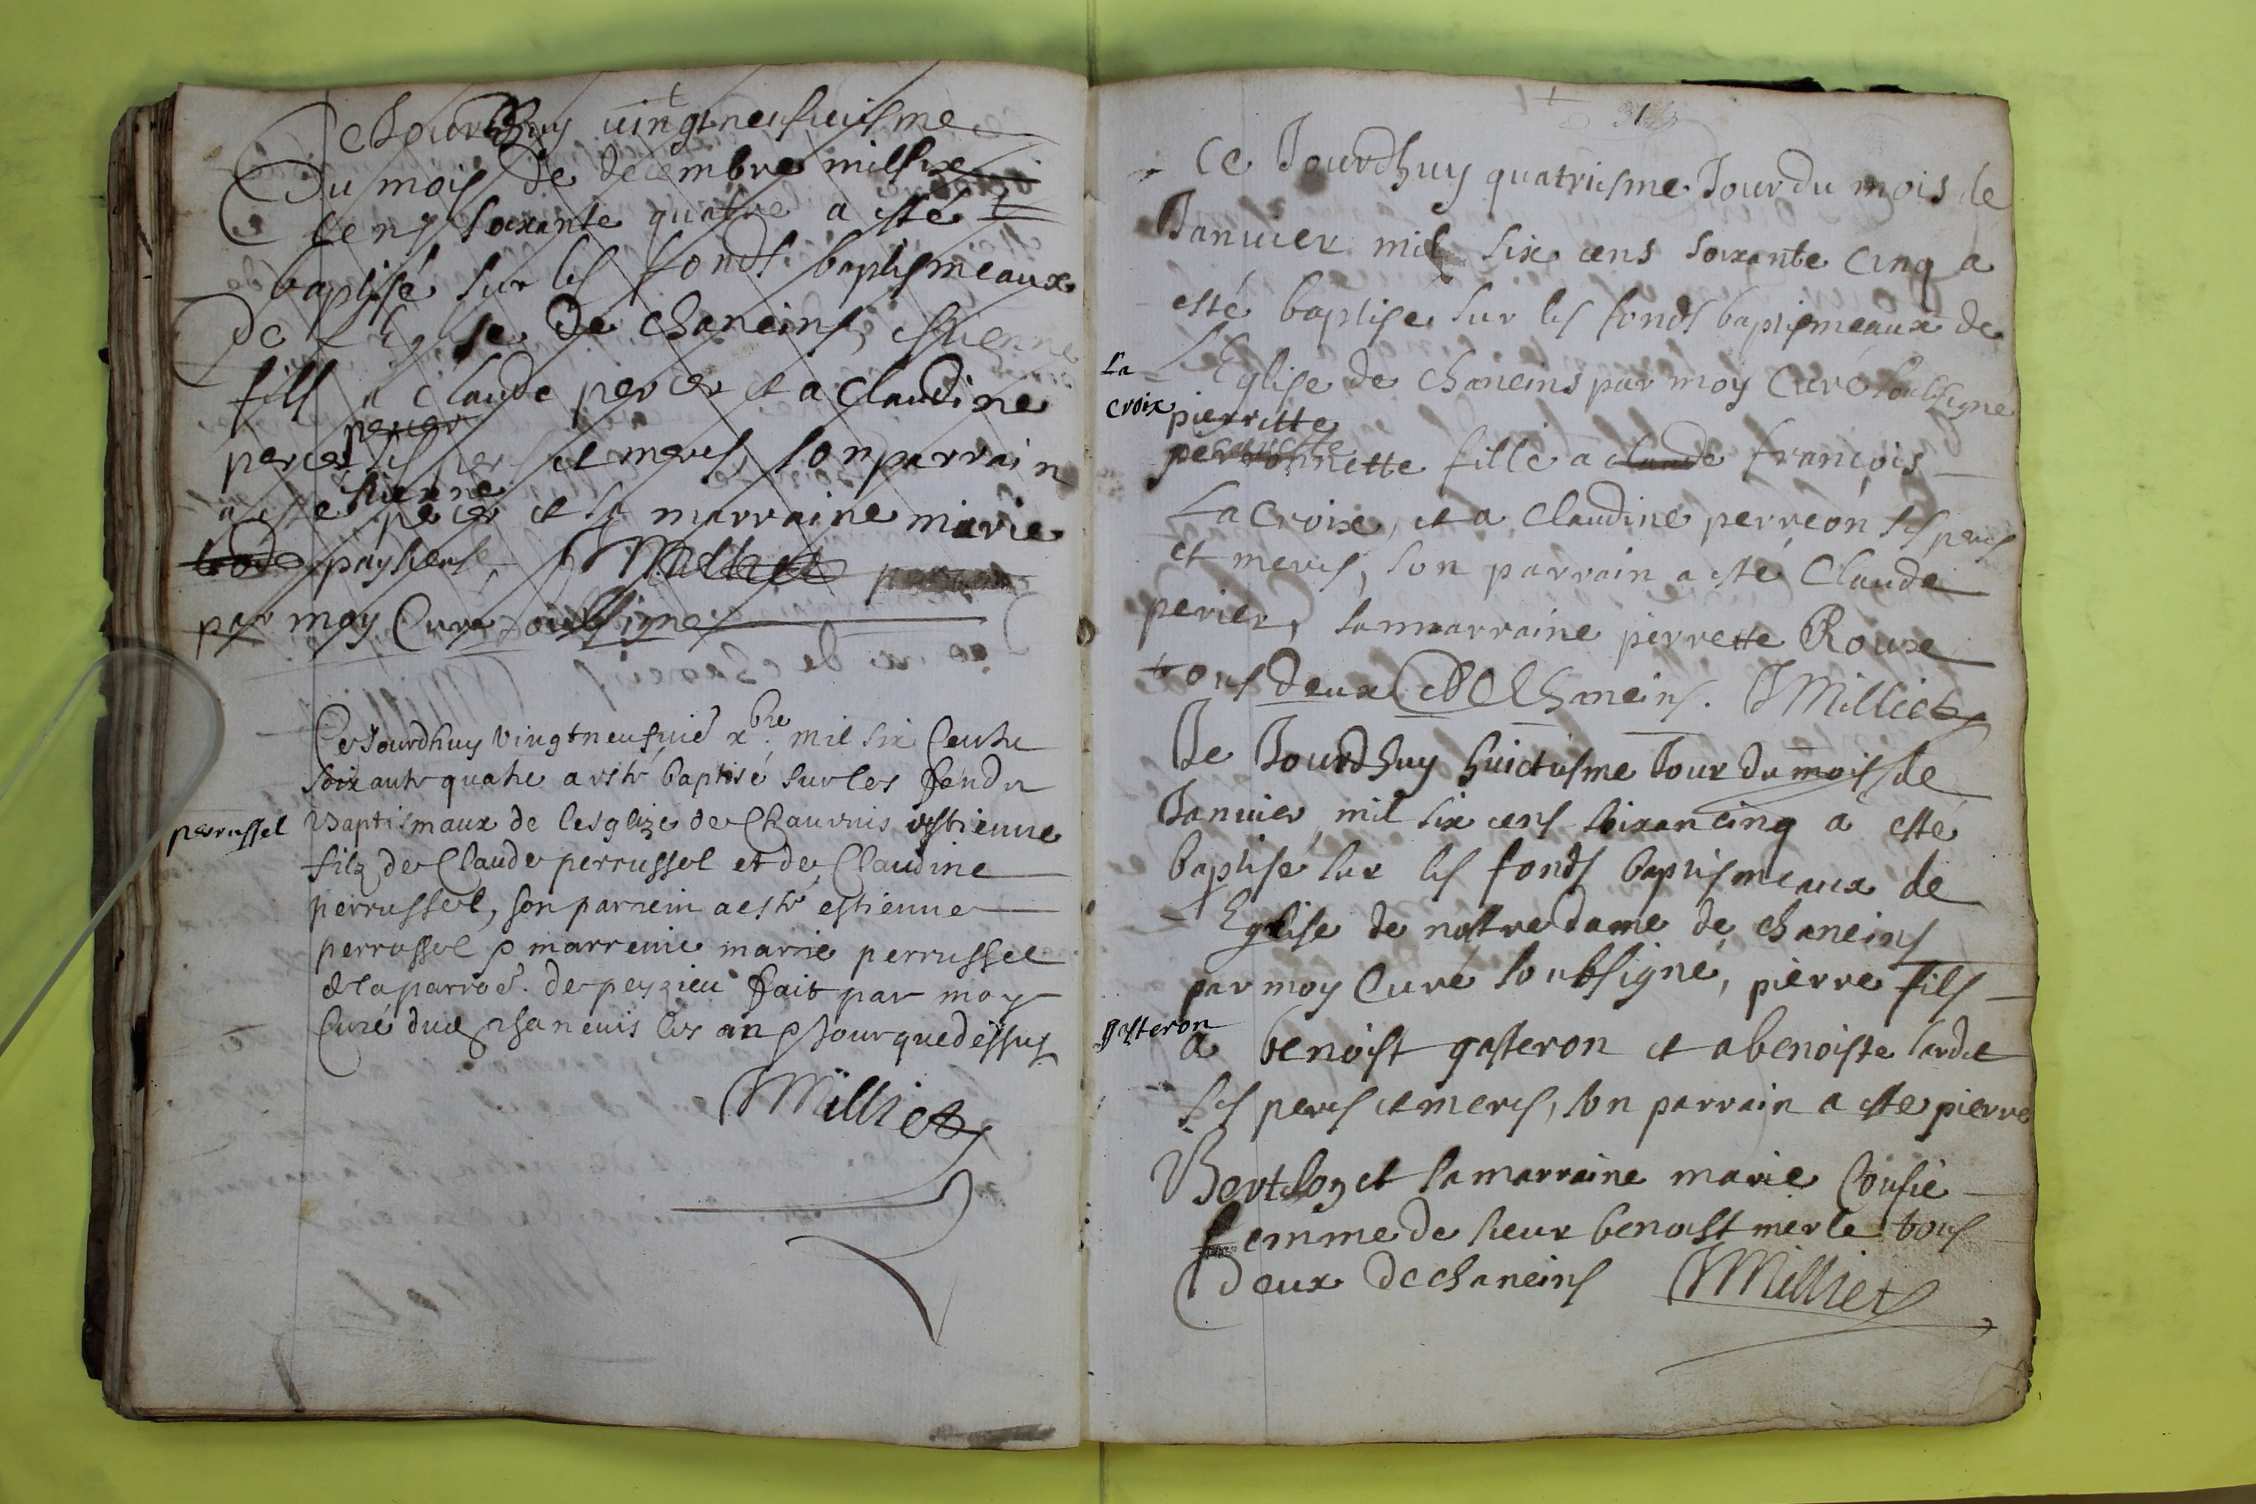 Ce Jourdhuy vingt neufuiesme
Du mois de decembre mil six
cens soixante quatre a esté
baptisé sur les fonds baptismeaux
De L'Eglise De chaneins, estienne
fils a claude percer et a claudine
perier
percer ses peres et meres, son parrain
estienne
a esté percer et sa marraine marie
par moy Curé soubsigné
Ce Jourdhuy vingt neufuie xbre mil six Centz
soixante quatre a esté baptisé sur les fondz
Baptismaux de lesglize de Chaneins estienne
perrussel
filz de Claude perrussel et de Claudine
perrussel, son parrein a esté estienne
perrussel & marreine marie perrussel
de la parroe. de peyzieu fait par moy
Curé dud chaneins les an & Jour que dessus
JMilliet
Ce Jourdhuy quatriesme Jour du mois de
Januier mil six cens soixante cinq a
esté baptisé sur les fonds baptismeaux de
L'Eglise de chaneins par moy Curé soubsigné
La
croix
pierrette
perronnette fille a claude françois
La Croix, et a Claudine perreon ses peres
et meres, son parrain a esté Claude
perier, sa marraine pierrette Roux
tous deux de Chaneins. JMilliet
Ce Jourdhuy huictiesme Jour du mois de
Januier mil six cens soixan cinq a esté
baptisé sur les fonds baptismeaux de
L'Eglise de nostre dame de chaneins
par moy Curé soubsigné, pierre fils
gasteron
a benoist gasteron et a benoiste sardet
ses peres et meres, son parrain a esté pierre
Berthon et sa marraine marie
femme de sieur benoist merle tous
deux de chaneins JMilliet